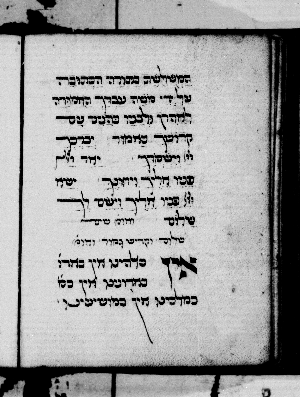 המשולשת בתורה הכתובה
על ידי משה עבדך האמורה
לאהרן ולבניו כהנים עם
קדושך כאמור יברכך
יי וישמרך יאר יי
פניו אליך ויחנך ישא
יי פניו אליך וישם לך
שלום
אין כאלהינו אין כאדו
כאדונינו אין כמ
כמלכינו אין כמושיעינו